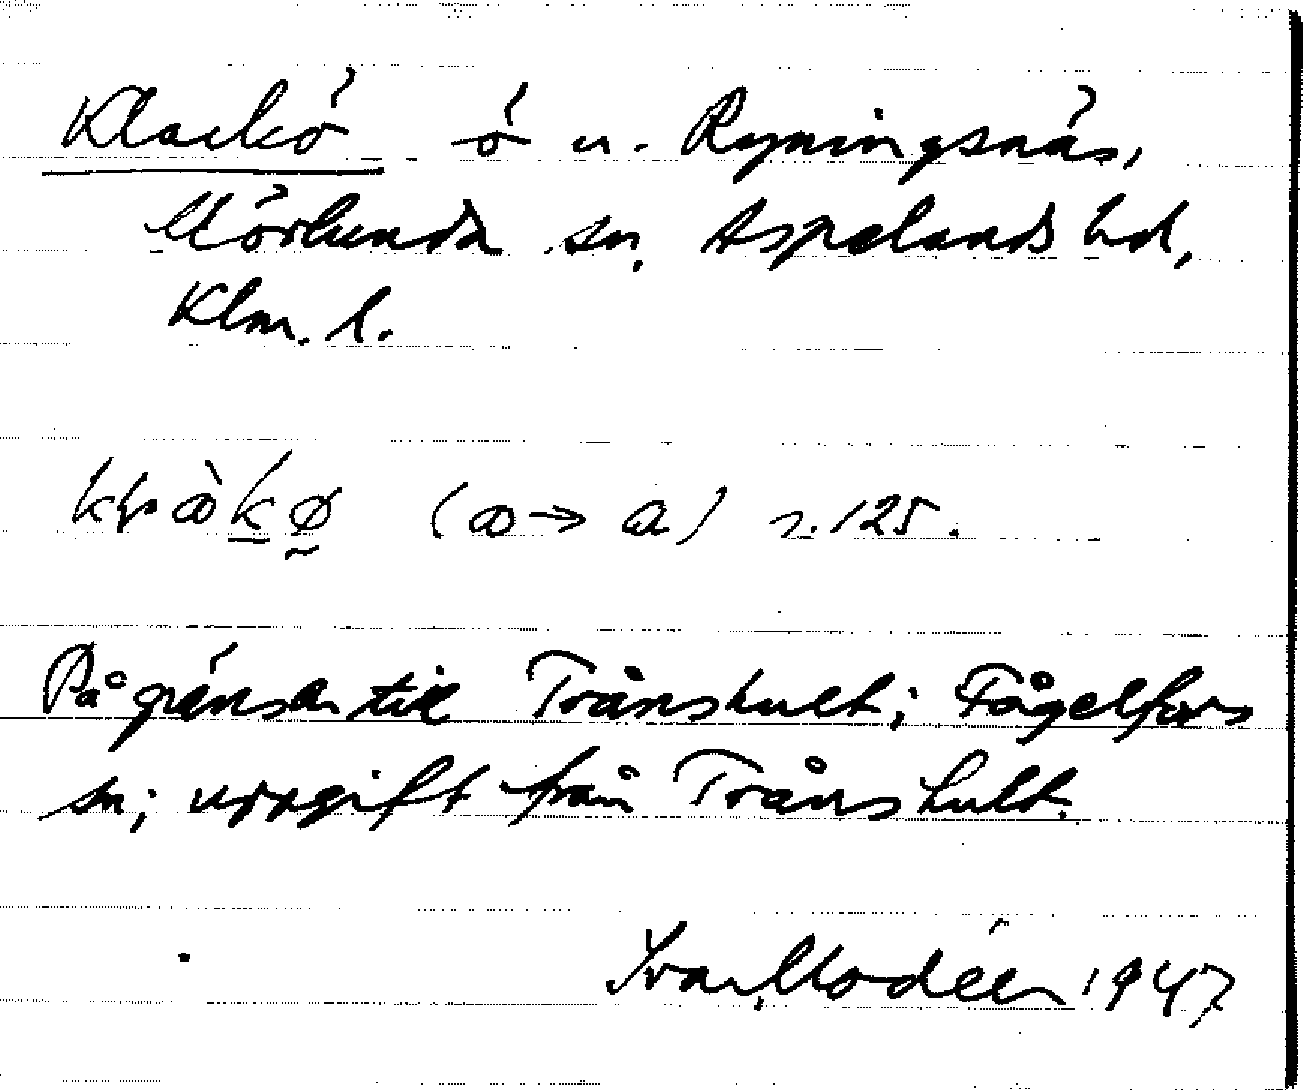 Klackö ö u. Ryningsnäs,
Mörlunda sn, Aspelands hd,
Klm. l.
(ɷ→a) s. 125.
På gränsen till Trånshult; Fågelfors
sn; uppgift från Trånshult.
Ivar Modéer 1947